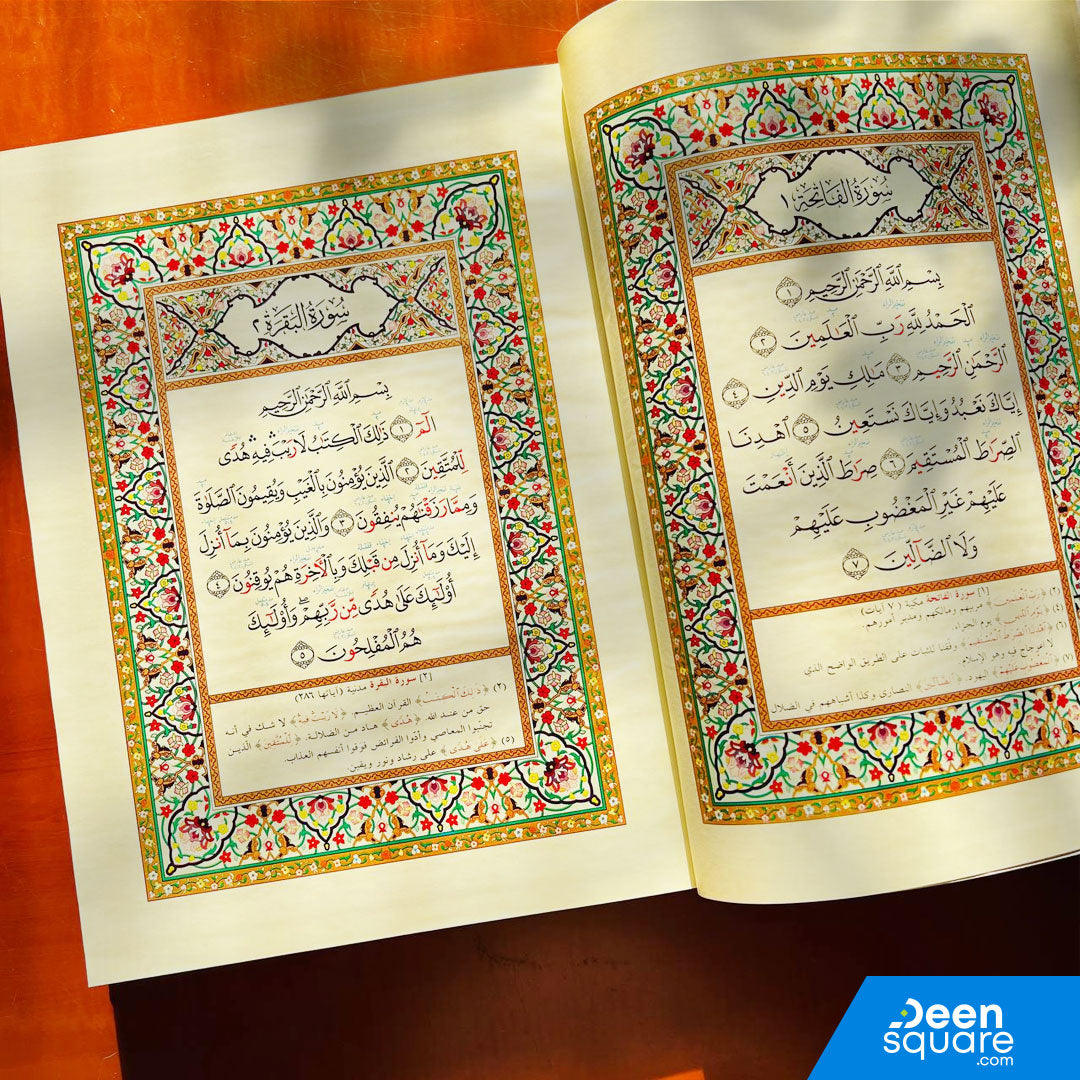 سُورَةُ الفَاتِحَةِ ١
بِسْمِ ٱللَّهِ ٱلرَّحْمَٰنِ ٱلرَّحِيمِ ١
ٱلْحَمْدُ لِلَّهِ رَبِّ ٱلْعَٰلَمِينَ ٢
ٱلرَّحْمَٰنِ ٱلرَّحِيمِ ٣ مَٰلِكِ يَوْمِ ٱلدِّينِ ٤
إِيَّاكَ نَعْبُدُ وَإِيَّاكَ نَسْتَعِينُ ٥ ٱهْدِنَا
ٱلصِّرَٰطَ ٱلْمُسْتَقِيمَ ٦ صِرَٰطَ ٱلَّذِينَ أَنْعَمْتَ
عَلَيْهِمْ غَيْرِ ٱلْمَغْضُوبِ عَلَيْهِمْ
وَلَا ٱلضَّآلِّينَ ٧
[١] سورة الفاتحة مكية (٧ آيات)
(٢) ﴿رَبِّ الْعَٰلَمِينَ﴾ مربيهم ومالكهم ومدبر أمورهم.
(٤) ﴿يَوْمِ الدِّينِ﴾ يوم الجزاء.
(٦) ﴿اهْدِنَا الصِّرَٰطَ الْمُسْتَقِيمَ﴾ وفقنا للثبات على الطريق الواضح الذي
لا اعوجاج فيه وهو الإسلام.
(٧) ﴿الْمَغْضُوبِ عَلَيْهِمْ﴾ اليهود. ﴿الضَّآلِّينَ﴾ النصارى وكذا أشباههم في الضلال
سُورَةُ البَقَرَةِ ٢
بِسْمِ ٱللَّهِ ٱلرَّحْمَٰنِ ٱلرَّحِيمِ
الٓمٓ ١ ذَٰلِكَ ٱلْكِتَٰبُ لَا رَيْبَ ۛ فِيهِ ۛ هُدًى
لِّلْمُتَّقِينَ ٢ ٱلَّذِينَ يُؤْمِنُونَ بِٱلْغَيْبِ وَيُقِيمُونَ ٱلصَّلَوٰةَ
وَمِمَّا رَزَقْنَٰهُمْ يُنفِقُونَ ٣ وَٱلَّذِينَ يُؤْمِنُونَ بِمَآ أُنزِلَ
إِلَيْكَ وَمَآ أُنزِلَ مِن قَبْلِكَ وَبِٱلْأَخِرَةِ هُمْ يُوقِنُونَ ٤
أُو۟لَٰٓئِكَ عَلَىٰ هُدًى مِّن رَّبِّهِمْ ۖ وَأُو۟لَٰٓئِكَ
هُمُ ٱلْمُفْلِحُونَ ٥
[٢] سورة البقرة مدنية (آياتها ٢٨٦)
(٢) ﴿ذَٰلِكَ الْكِتَٰبُ﴾ القرآن العظيم. ﴿لَا رَيْبَ فِيهِ﴾ لا شك في أنه
حق من عند الله. ﴿هُدًى﴾ هاد من الضلالة. ﴿لِّلْمُتَّقِينَ﴾ الذين
تجنبوا المعاصي وأدوا الفرائض فوقوا أنفسهم العذاب.
(٥) ﴿عَلَىٰ هُدًى﴾ على رشاد ونور ويقين.
Deen
square
.com